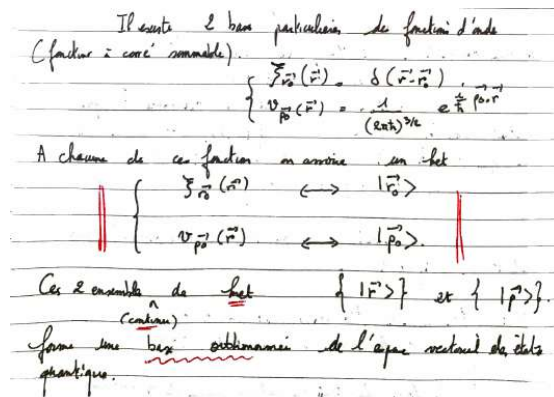 Il existe 2 base particulières de fonction d'onde
(fonction à carré sommable).
ξ_{r⃗₀}(r⃗) = δ(r⃗-r⃗₀)
v_{p⃗₀}(r⃗) = 1/(2πħ)^{3/2} e^{i/ħ p⃗₀·r⃗}
A chacune de ces fonction on associe un ket
ξ_{r⃗₀}(r⃗) ⟷ |r⃗₀>
v_{p⃗₀}(r⃗) ⟷ |p⃗₀>.
Ces 2 ensemble de ket {|r⃗>} et {|p⃗>}.
(continu)
forme une base orthonormée de l'espace vectoriel des états
quantique.